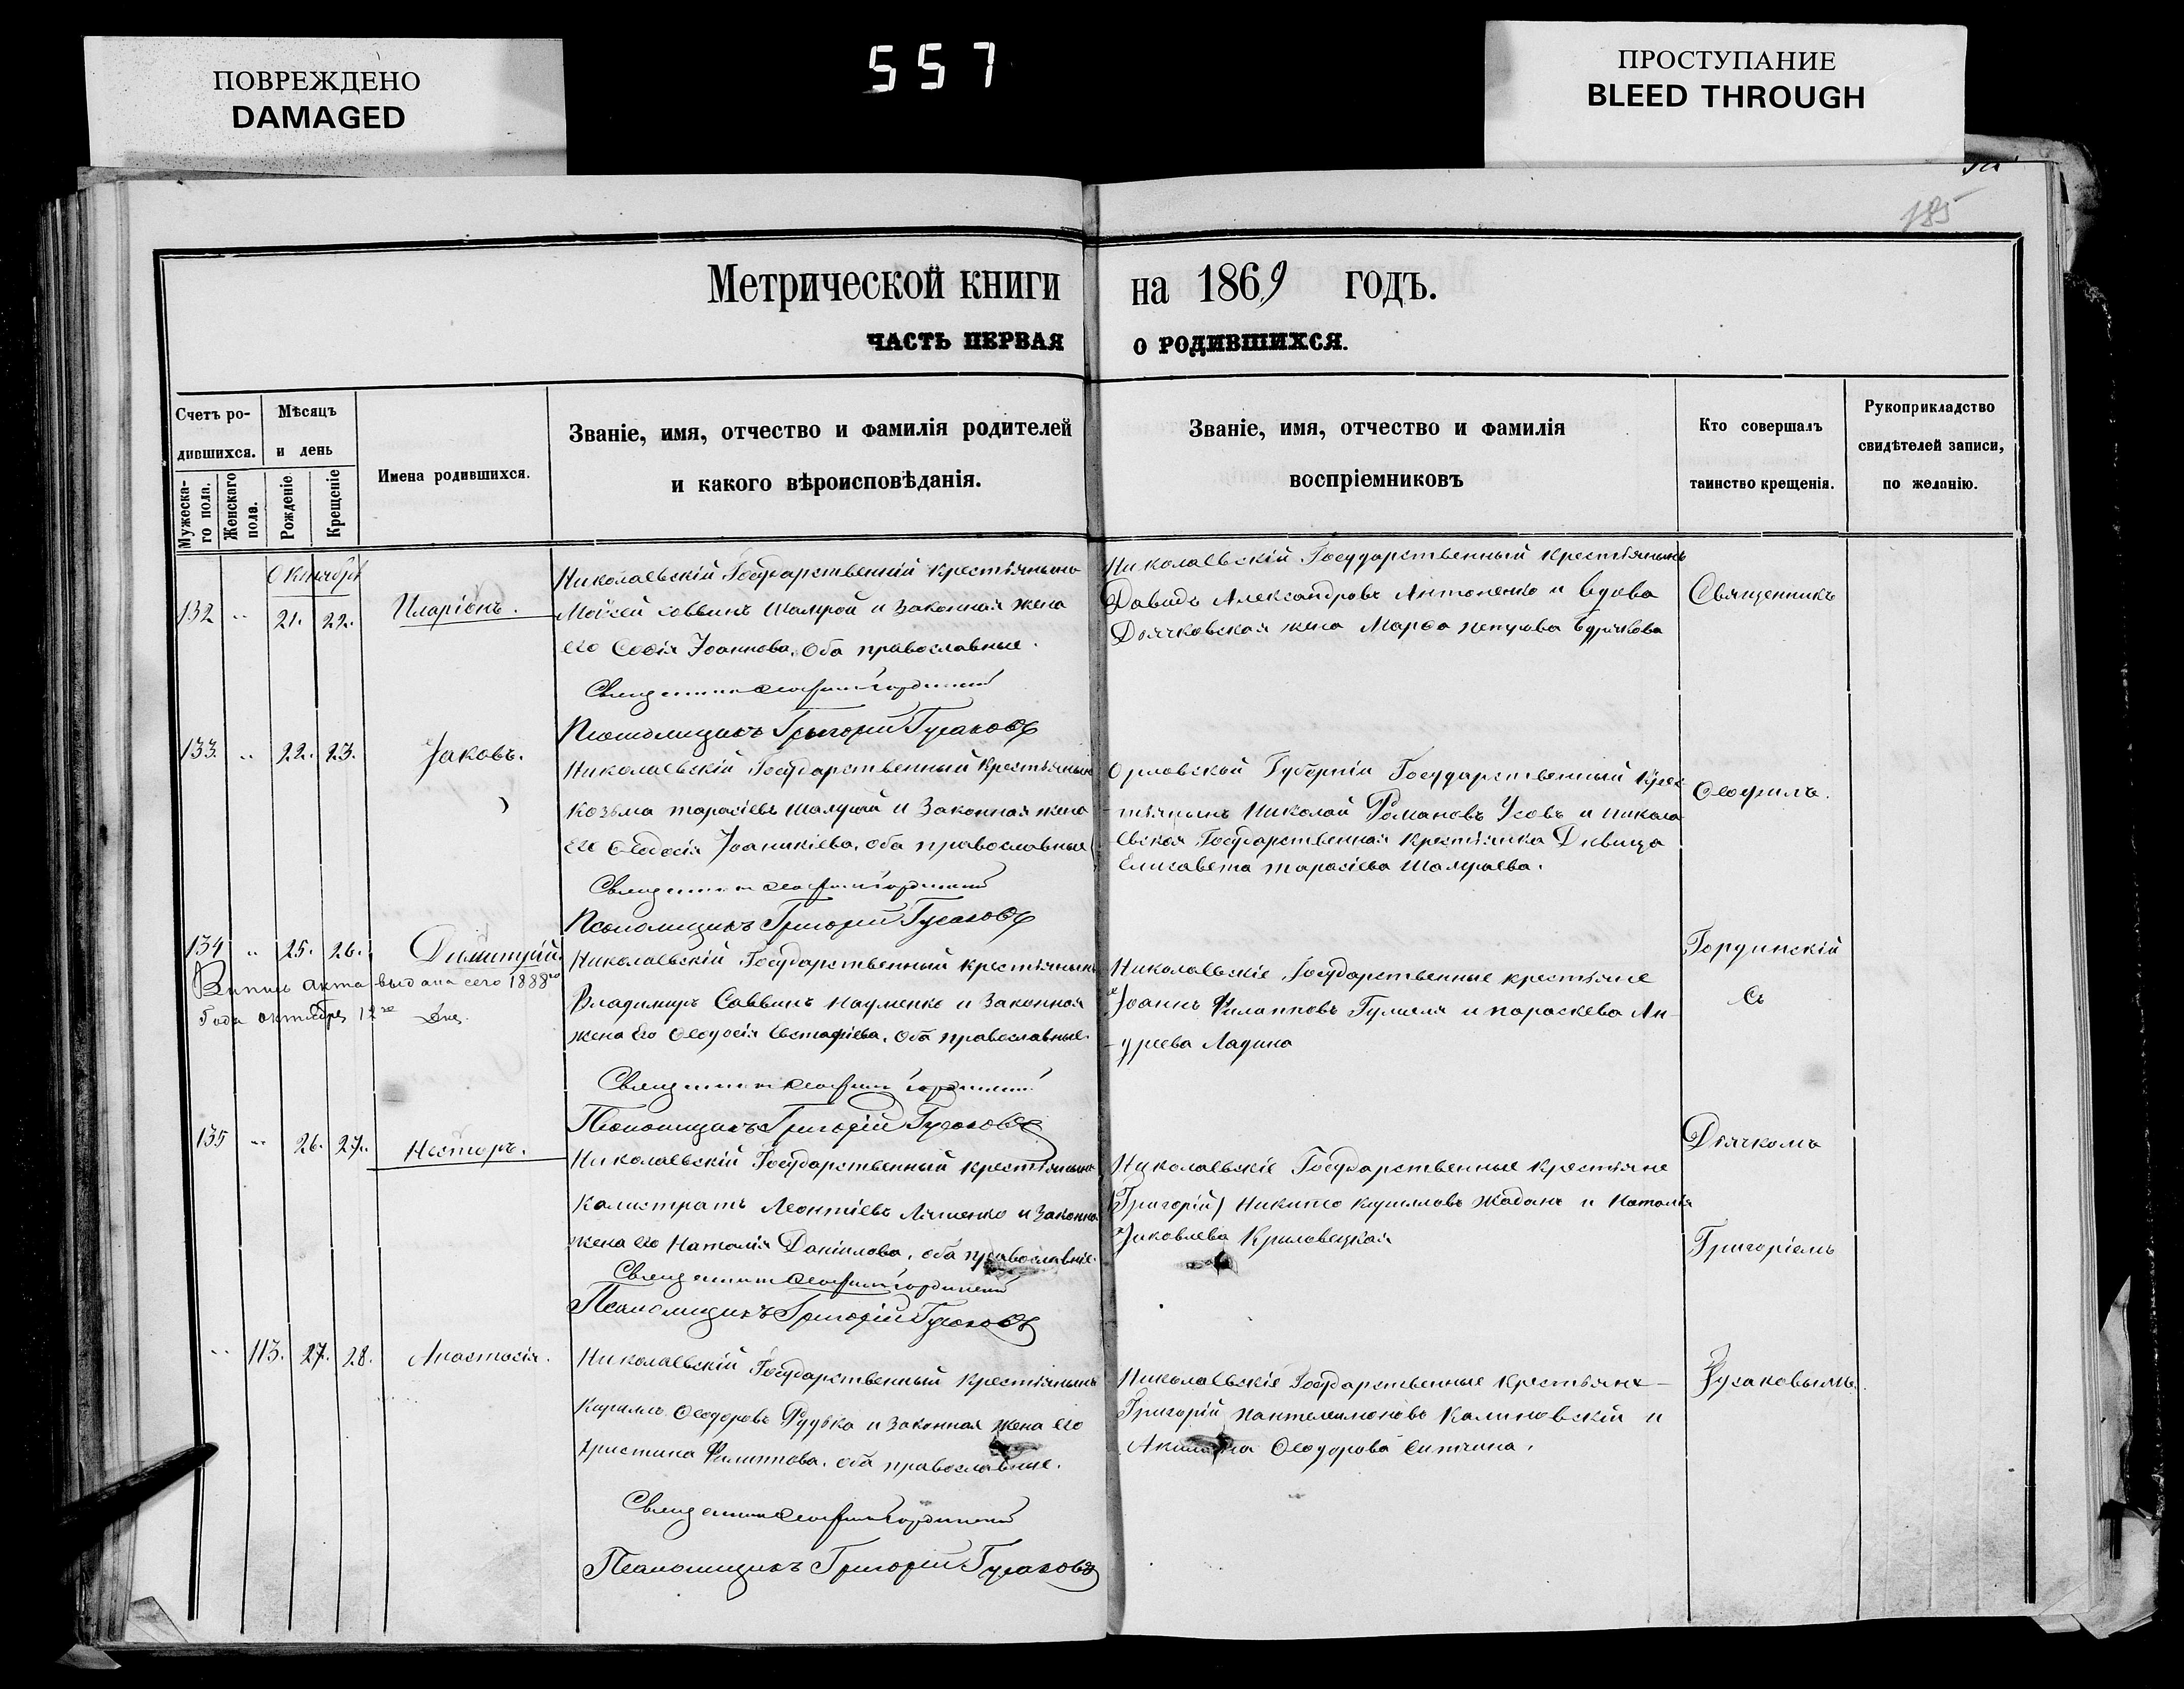 ПОВРЕЖДЕНО
DAMAGED
557
ПРОСТУПАНИЕ
BLEED THROUGH
185
Метрической книги на 1869 годъ.
ЧАСТЬ ПЕРВАЯ О РОДИВШИХСЯ.
Счетъ ро-
дившихся.
Мужеска-
го пола.
Женскаго
пола.
Мѣсяцъ
и день
Рожденіе.
Крещеніе
Имена родившихся.
Званіе, имя, отчество и фамилія родителей
и какого вѣроисповѣданія.
Званіе, имя, отчество и фамилія
воспріемниковъ
Кто совершалъ
таинство крещенія.
Рукоприкладство
свидѣтелей записи,
по желанію.
Октября
132 " 21. 22. Иларіонъ.
Николаевскій Государственній крестьянинъ
Моѵсей Саввинъ Шамрай и Законная жена
его Софія Іоаннова. Оба православные.
Священникъ Ѳеофилъ Гординскій
Псаломщикъ Григорій Гусаковъ
Николаевскій Государственный крестьянинъ
Давидъ Александровъ Антоненко и вдова
Дьячковская жена Марѳа Петрова
133. " 22. 23. Іаковъ.
Николаевскій Государственный крестьянинъ
Козьма Тарасіевъ Шамрай и Законная жена
его Ѳеодосія Іоаникіева. оба православные
Священникъ Ѳеофилъ Гординскій
Псаломщикъ Григорій Гусаковъ
Орловской Губерніи Государственный Крес-
тьянинъ Николай Романовъ Усовъ и Никола
евская Государственная Крестьянка Дѣвица
Елисавета Тарасіева Шамраева.
134 " 25. 26. Димитрій.
Випись акта выдана сего 1888го
Года октября 12го дня.
Николаевскій Государственный крестьянинъ
Владимиръ Саввинъ Науменко и Законная
жена Его Ѳеодосія Евстафіева. Оба православные.
Священникъ Ѳеофилъ Гординскій
Псаломщикъ Григорій Гусаковъ
Николаевскіе Государственные крестьяне
Іоаннъ Филипповъ и Параскева Ан-
дреева Ладина
135 " 26. 27. Несторъ.
Николаевскій Государственный крестьянинъ
Калистратъ Леонтіевъ Ляшенко и Законна
жена его Наталія Даніилова. оба православніе.
Священникъ Ѳеофилъ Гординскій
Псаломщикъ Григорій Гусаковъ
Николаевскіе Государственные крестьяне
(Григорій) Никита Кириловъ Жаданъ и Наталія
Яковлева Криловецкая
" 113. 27. 28. Анастасія.
Николаевскій Государственный крестьянинъ
Кирилъ Ѳеодоровъ Рудька и Законная жена его
Христина Филиппова. оба православные.
Священникъ Ѳеофилъ Гординскій
Псаломщикъ Григорій Гусаковъ
Николаевскіе Государственные крестьяне
Григорій Пантелеимоновъ Калиновскій и
Акилина Ѳеодорова Ситчина.
Священникъ
Ѳеофилъ
Гординскій
Съ
Дьячкомъ
Григоріемъ
Гусаковымъ.